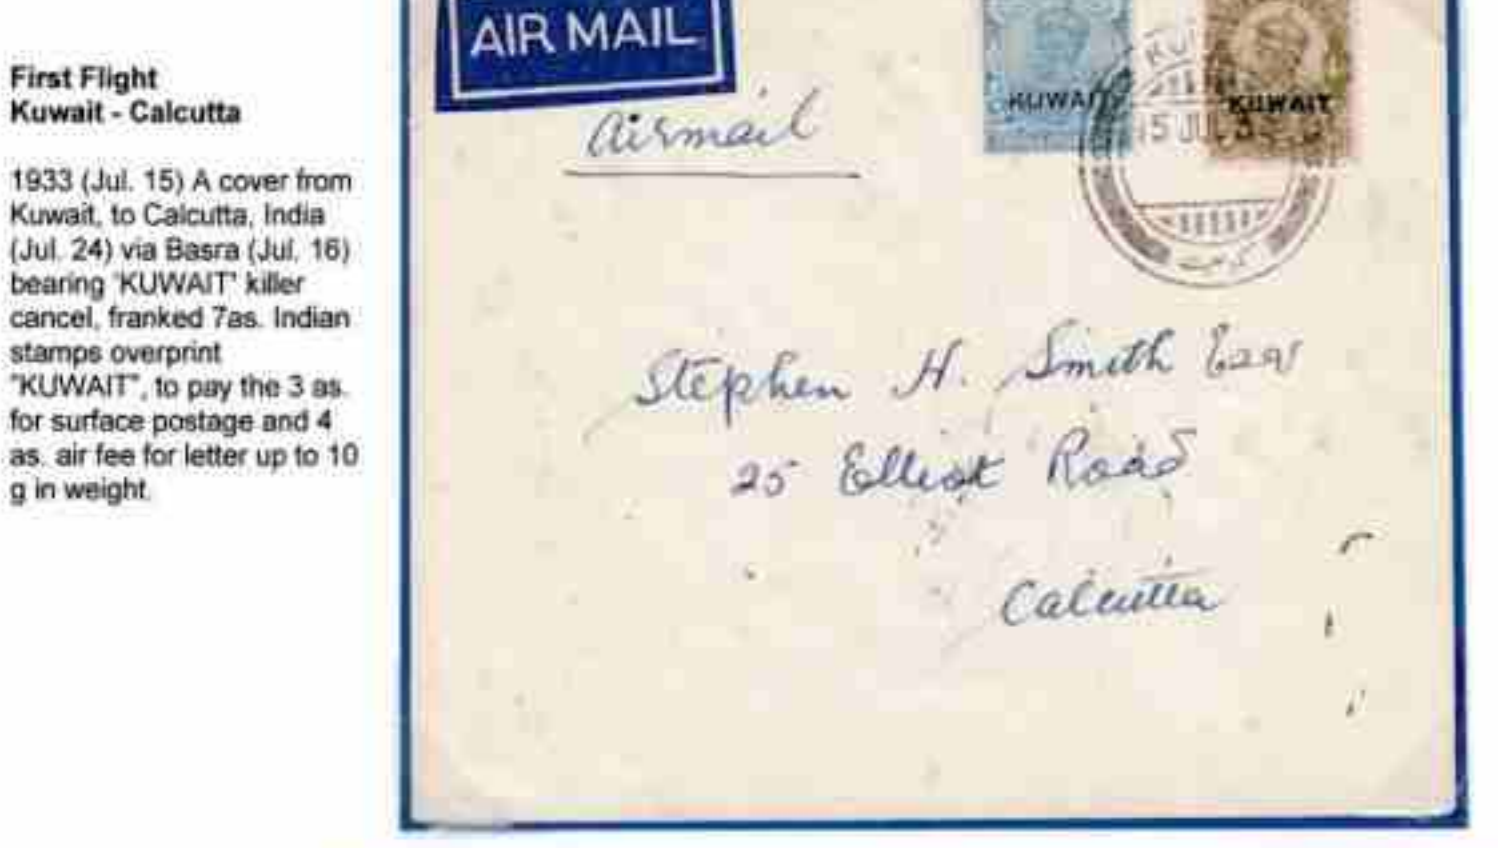 First Flight
Kuwait - Calcutta
1933 (Jul. 15) A cover from
Kuwait, to Calcutta, India
(Jul. 24) via Basra (Jul. 16)
bearing "KUWAIT" killer
cancel, franked 7as. Indian
stamps overprint
"KUWAIT", to pay the 3 as.
for surface postage and 4
as. air fee for letter up to 10
g in weight.
AIR MAIL
Airmail
KUWAIT
KUWAIT
15 JUL
Stephen H. Smith Esqr
25 Elliot Road
Calcutta